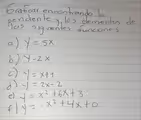 Graficar, encontrando la
pendiente y los elementos de
las siguientes funciones
a) y = 5x
b) y - 2x
c) y = x + 1
d) y = 2x - 2
e) y = x² + 6x + 3
f) y = - x² + 4x + 0